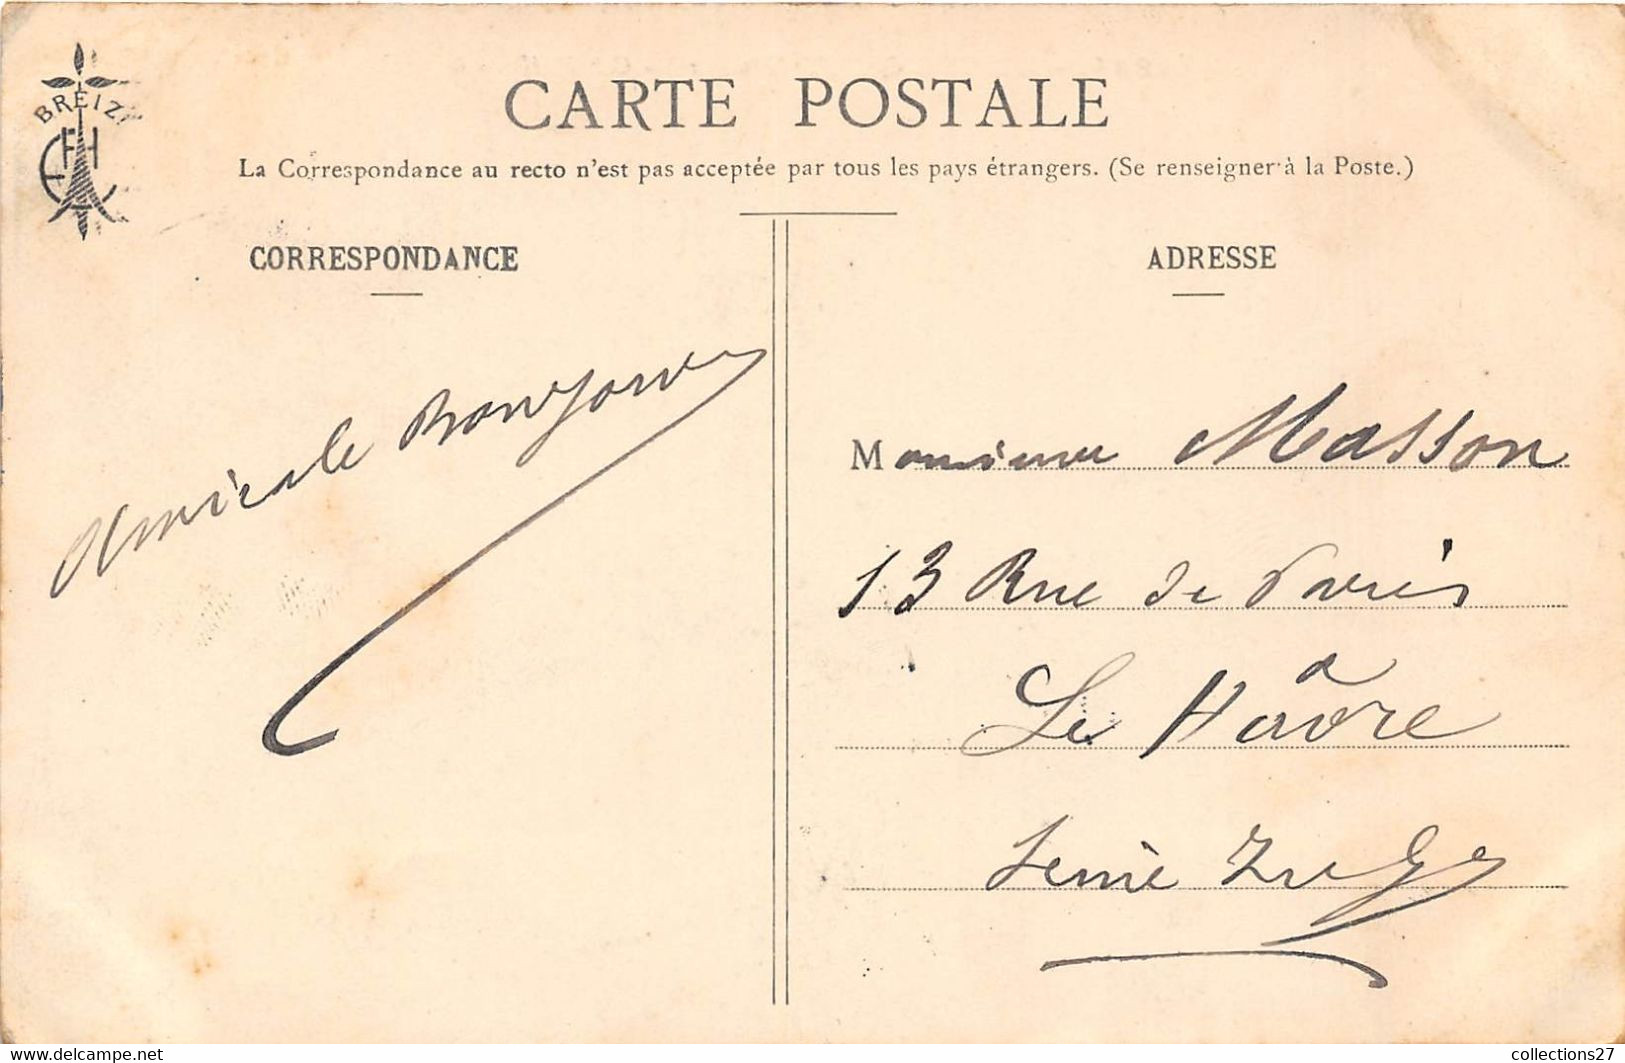 BREIZ
CARTE POSTALE
La Correspondance au recto n'est pas acceptée par tous les pays étrangers. (Se renseigner à la Poste.)
CORRESPONDANCE
Amicale Bonjour
ADRESSE
Monsieur Masson
13 Rue de Paris
Le Hâvre
Seine Infre
www.delcampe.net
collections27